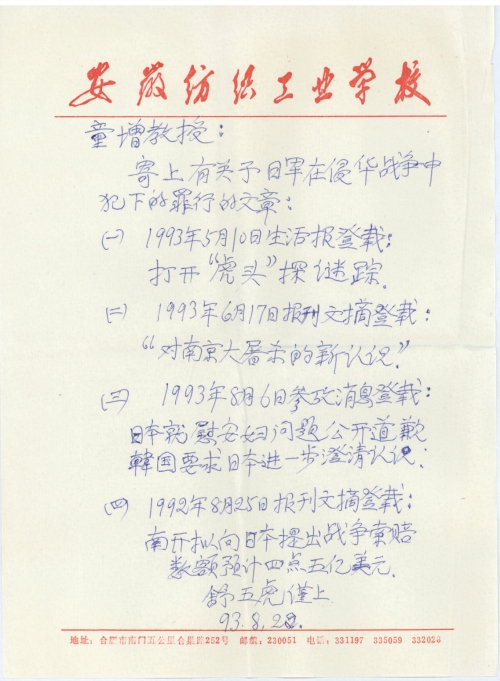 安徽纺织工业学校
童增教授:
寄上有关于日军在侵华战争中
犯下的罪行的文章:
(一) 1993年5月10日生活报登载:
打开“虎头”探谜踪.
(二) 1993年6月17日报刊文摘登载:
“对南京大屠杀的新认识”.
(三) 1993年8月6日参攷消息登载:
日本就慰安妇问题公开道歉
韓国要求日本进一步澄清认识.
(四) 1992年8月25日报刊文摘登载:
南开拟向日本提出战争索赔
数额预计四点五亿美元.
舒五虎谨上
93.8.20.
地址: 合肥市南门五公里合巢路252号 邮编: 230051 电话: 331197 335059 332028